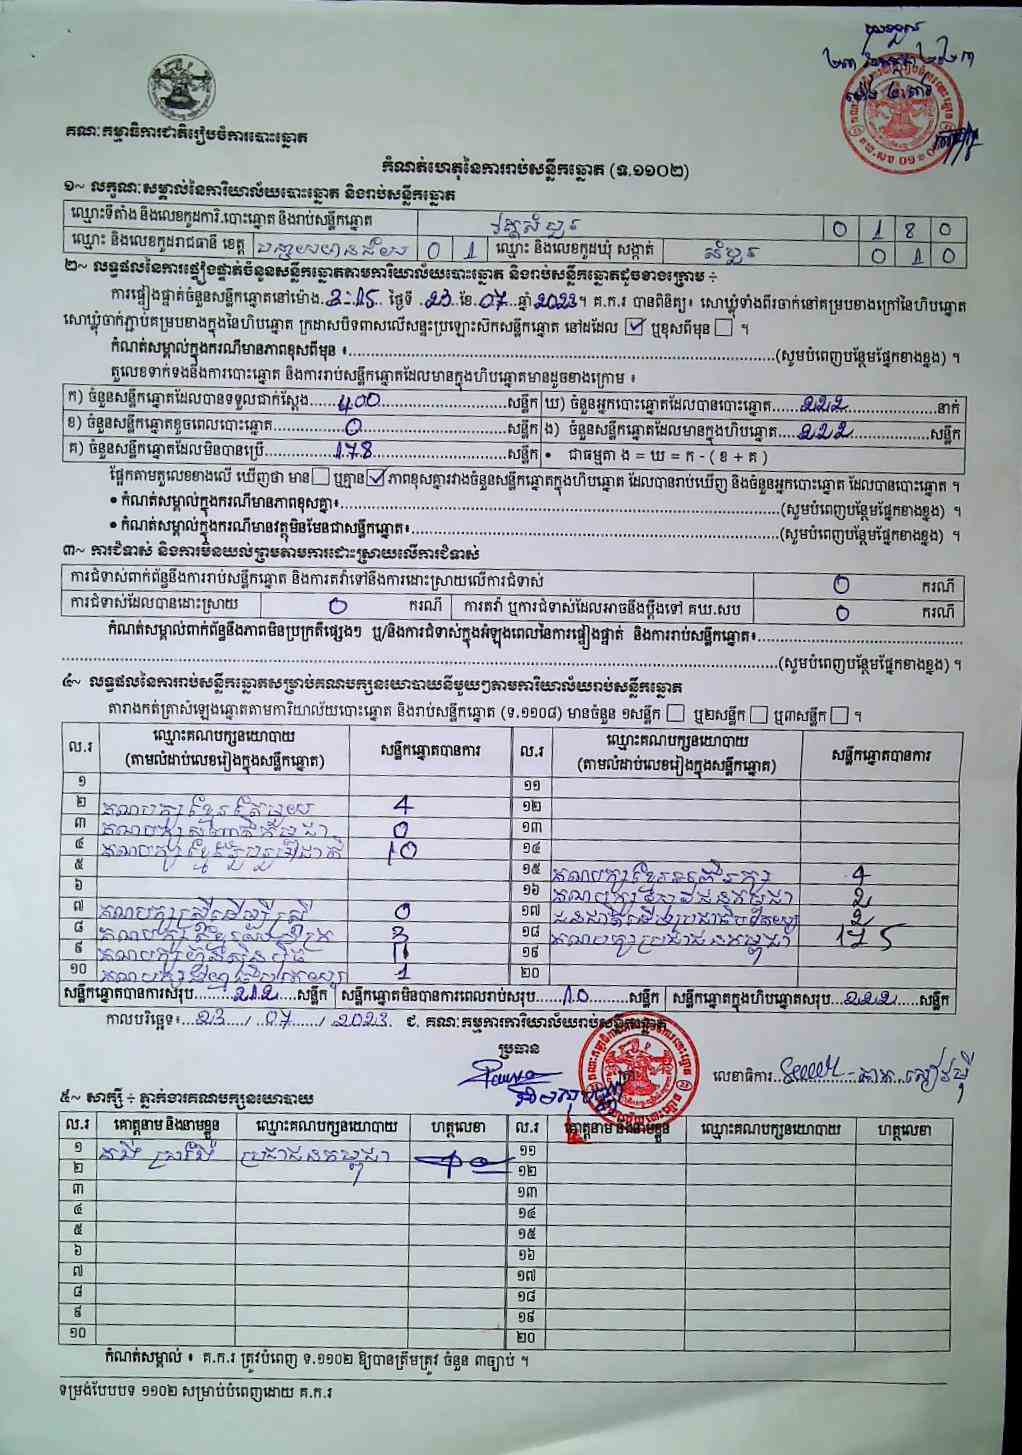 គណៈកម្មាធិការជាតិរៀបចំការបោះឆ្នោត
កំណត់ហេតុនៃការរាប់សន្លឹកឆ្នោត (ទ.១១០២)
១~ លក្ខណៈសម្គាល់នៃការិយាល័យបោះឆ្នោត និងរាប់សន្លឹកឆ្នោត
ឈ្មោះទីតាំង និងលេខកូដការិ.បោះឆ្នោត និងរាប់សន្លឹកឆ្នោត វត្តសំបួរ 0 1 8 0
ឈ្មោះ និងលេខកូដរាជធានី ខេត្ត បន្ទាយមានជ័យ 0 1 ឈ្មោះ និងលេខកូដឃុំ សង្កាត់ សំបួរ 0 1 0
២~ លទ្ធផលនៃការផ្ទៀងផ្ទាត់ចំនួនសន្លឹកឆ្នោតតាមការិយាល័យបោះឆ្នោត និងរាប់សន្លឹកឆ្នោតដូចខាងក្រោម ÷
ការផ្ទៀងផ្ទាត់ចំនួនសន្លឹកឆ្នោតនៅម៉ោង.3-15 ថ្ងៃទី .23.ខែ.07.ឆ្នាំ 2023។ គ.ក.រ បានពិនិត្យ៖ សោឃ្លុំទាំងពីរចាក់នៅគម្របខាងក្រៅនៃហិបឆ្នោត
សោឃ្លុំចាក់ភ្ជាប់គម្របខាងក្នុងនៃហិបឆ្នោត ក្រដាសបិទពាសលើសន្ទះប្រឡោះស៊កសន្លឹកឆ្នោត នៅដដែល ☑ ឬខុសពីមុន ☐ ។
កំណត់សម្គាល់ក្នុងករណីមានភាពខុសពីមុន ៖..........(សូមបំពេញបន្ថែមផ្នែកខាងខ្នង) ។
តួលេខទាក់ទងនឹងការបោះឆ្នោត និងការរាប់សន្លឹកឆ្នោតដែលមានក្នុងហិបឆ្នោតមានដូចខាងក្រោម ៖
ក) ចំនួនសន្លឹកឆ្នោតដែលបានទទួលជាក់ស្តែង......400......សន្លឹក ឃ) ចំនួនអ្នកបោះឆ្នោតដែលបានបោះឆ្នោត......222......នាក់
ខ) ចំនួនសន្លឹកឆ្នោតខូចពេលបោះឆ្នោត......0......សន្លឹក ង) ចំនួនសន្លឹកឆ្នោតដែលមានក្នុងហិបឆ្នោត....222......សន្លឹក
គ) ចំនួនសន្លឹកឆ្នោតដែលមិនបានប្រើ......178......សន្លឹក • ជាធម្មតា ង = ឃ = ក - ( ខ + គ )
ផ្អែកតាមតួលេខខាងលើ ឃើញថា មាន ☐ ឬគ្មាន ☑ ភាពខុសគ្នារវាងចំនួនសន្លឹកឆ្នោតក្នុងហិបឆ្នោត ដែលបានរាប់ឃើញ និងចំនួនអ្នកបោះឆ្នោត ដែលបានបោះឆ្នោត ។
• កំណត់សម្គាល់ក្នុងករណីមានភាពខុសគ្នា៖..........(សូមបំពេញបន្ថែមផ្នែកខាងខ្នង) ។
• កំណត់សម្គាល់ក្នុងករណីមានវត្ថុមិនមែនជាសន្លឹកឆ្នោត៖..........(សូមបំពេញបន្ថែមផ្នែកខាងខ្នង) ។
៣~ ការជំទាស់ និងការមិនយល់ព្រមតាមការដោះស្រាយលើការជំទាស់
ការជំទាស់ពាក់ព័ន្ធនឹងការរាប់សន្លឹកឆ្នោត និងការតវ៉ាទៅនឹងការដោះស្រាយលើការជំទាស់ 0 ករណី
ការជំទាស់ដែលបានដោះស្រាយ 0 ករណី ការតវ៉ា ឬការជំទាស់ដែលអាចនឹងប្តឹងទៅ គឃ.សប 0 ករណី
កំណត់សម្គាល់ពាក់ព័ន្ធនឹងភាពមិនប្រក្រតីផ្សេងៗ ឬ/និងការជំទាស់ក្នុងអំឡុងពេលនៃការផ្ទៀងផ្ទាត់ និងការរាប់សន្លឹកឆ្នោត៖..........
..........(សូមបំពេញបន្ថែមផ្នែកខាងខ្នង) ។
៤~ លទ្ធផលនៃការរាប់សន្លឹកឆ្នោតសម្រាប់គណបក្សនយោបាយនីមួយៗតាមការិយាល័យរាប់សន្លឹកឆ្នោត
តារាងកត់ត្រាសំឡេងឆ្នោតតាមការិយាល័យបោះឆ្នោត និងរាប់សន្លឹកឆ្នោត (ទ.១១០៨) មានចំនួន ១សន្លឹក ☐ ឬ២សន្លឹក ☐ ឬ៣សន្លឹក ☐ ។
ល.រ ឈ្មោះគណបក្សនយោបាយ (តាមលំដាប់លេខរៀងក្នុងសន្លឹកឆ្នោត) សន្លឹកឆ្នោតបានការ ល.រ ឈ្មោះគណបក្សនយោបាយ (តាមលំដាប់លេខរៀងក្នុងសន្លឹកឆ្នោត) សន្លឹកឆ្នោតបានការ
១ ១១
២ គណបក្សខ្មែរតែមួយ 4 ១២
៣ គណបក្សសញ្ជាតិកម្ពុជា 0 ១៣
៤ គណបក្សខ្មែររួបរួមជាតិ 10 ១៤
៥ ១៥ គណបក្សខ្មែរអភិរក្ស 4
៦ ១៦ 2
៧ គណបក្សស្រីដើម្បីស្រី 0 ១៧ 2
៨ 3 ១៨ គណបក្សប្រជាជនកម្ពុជា 175
៩ គណបក្សហ៊្វុនស៊ិនប៉ិច 11 ១៩
១០ 1 ២០
សន្លឹកឆ្នោតបានការសរុប.........212....សន្លឹក សន្លឹកឆ្នោតមិនបានការពេលរាប់សរុប......10.........សន្លឹក សន្លឹកឆ្នោតក្នុងហិបឆ្នោតសរុប...222.....សន្លឹក
កាលបរិច្ឆេទ៖...23..../..07....../..2023. ជ. គណៈកម្មការការិយាល័យរាប់សន្លឹកឆ្នោត
ប្រធាន
លេខាធិការ
៥~ សាក្សី ÷ ភ្នាក់ងារគណបក្សនយោបាយ
ល.រ គោត្តនាម និងនាមខ្លួន ឈ្មោះគណបក្សនយោបាយ ហត្ថលេខា ល.រ គោត្តនាម និងនាមខ្លួន ឈ្មោះគណបក្សនយោបាយ ហត្ថលេខា
១ ប្រជាជនកម្ពុជា ១១
២ ១២
៣ ១៣
៤ ១៤
៥ ១៥
៦ ១៦
៧ ១៧
៨ ១៨
៩ ១៩
១០ ២០
កំណត់សម្គាល់ ៖ គ.ក.រ ត្រូវបំពេញ ទ.១១០២ ឱ្យបានត្រឹមត្រូវ ចំនួន ៣ច្បាប់ ។
ទម្រង់បែបបទ ១១០២ សម្រាប់បំពេញដោយ គ.ក.រ